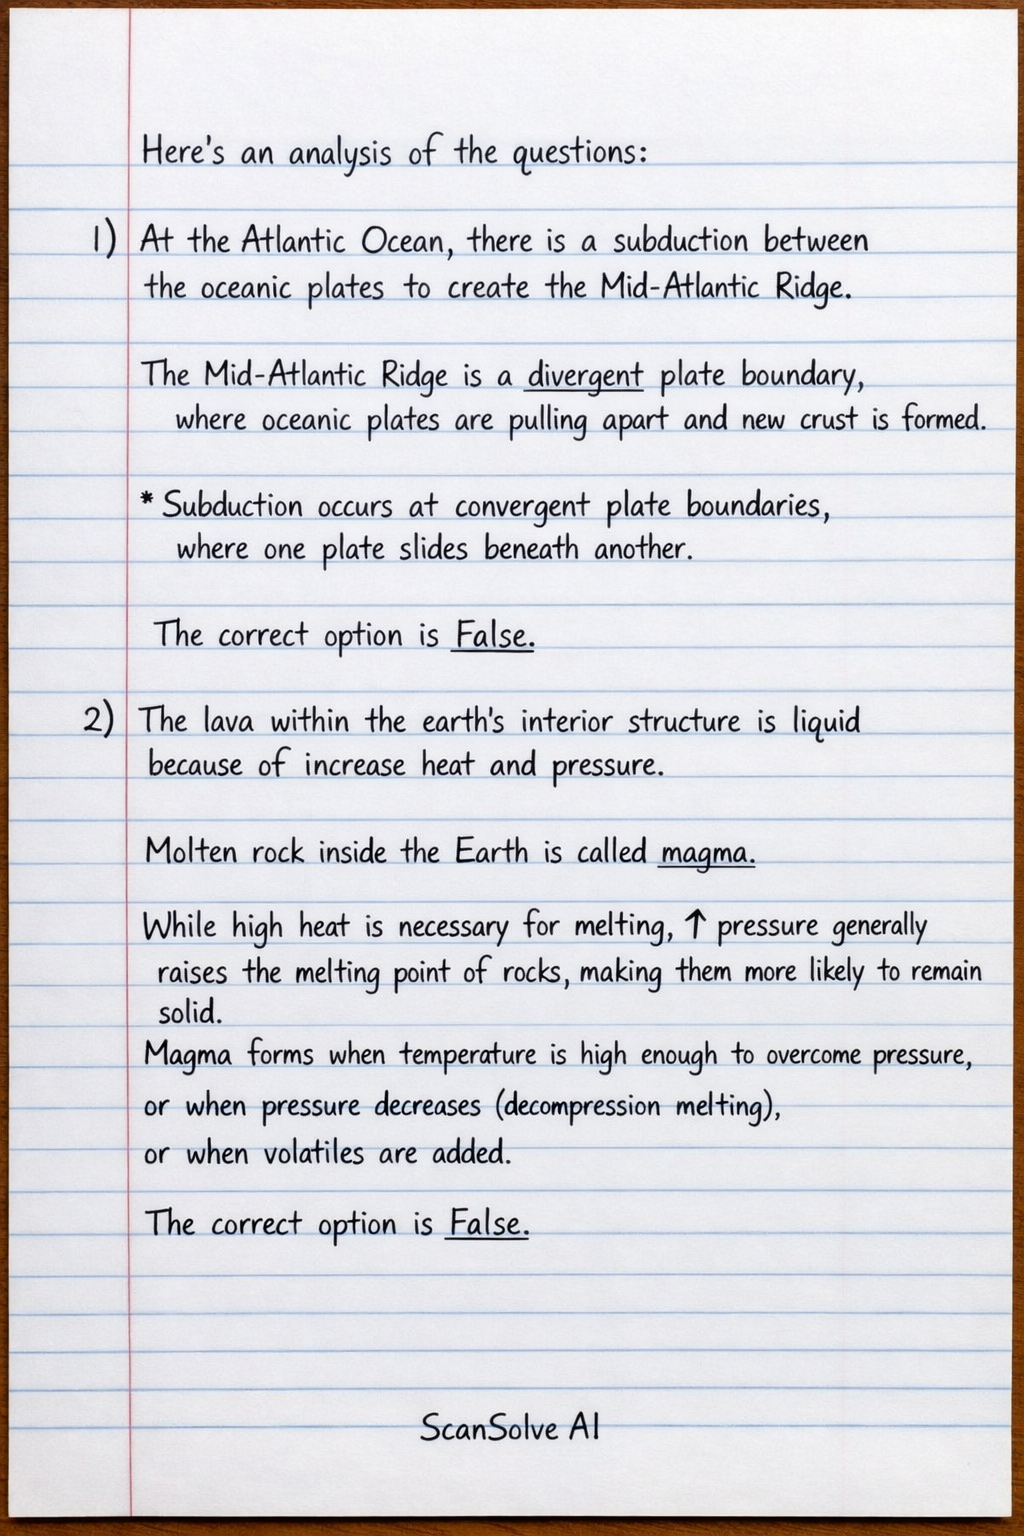 Here's an analysis of the questions:
1) At the Atlantic Ocean, there is a subduction between
the oceanic plates to create the Mid-Atlantic Ridge.
The Mid-Atlantic Ridge is a divergent plate boundary,
where oceanic plates are pulling apart and new crust is formed.
* Subduction occurs at convergent plate boundaries,
where one plate slides beneath another.
The correct option is False.
2) The lava within the earth's interior structure is liquid
because of increase heat and pressure.
Molten rock inside the Earth is called magma.
While high heat is necessary for melting, ↑ pressure generally
raises the melting point of rocks, making them more likely to remain
solid.
Magma forms when temperature is high enough to overcome pressure,
or when pressure decreases (decompression melting),
or when volatiles are added.
The correct option is False.
ScanSolve AI